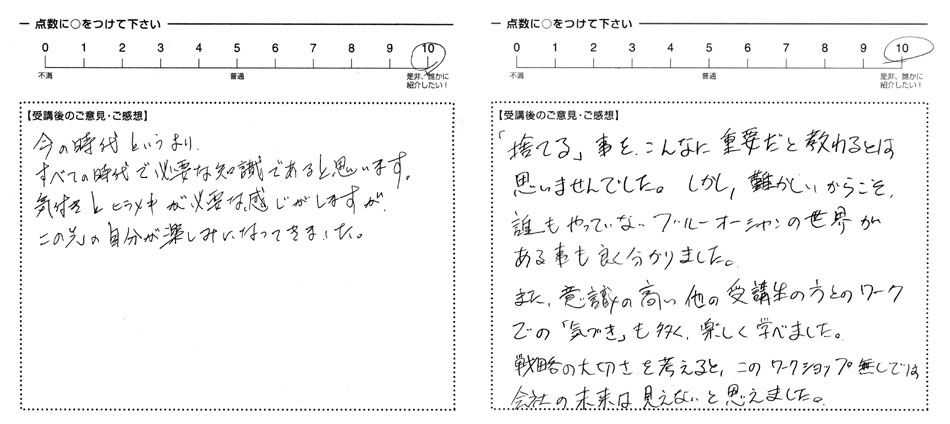 点数に○をつけて下さい
0 1 2 3 4 5 6 7 8 9 10
不満 普通 是非、誰かに
紹介したい！
【受講後のご意見・ご感想】
今の時代というより、
すべての時代で必要な知識であると思います。
気付きとヒラメキが必要な感じがしますが、
この先の自分が楽しみになってきました。
点数に○をつけて下さい
0 1 2 3 4 5 6 7 8 9 10
不満 普通 是非、誰かに
紹介したい！
【受講後のご意見・ご感想】
「捨てる」事を、こんなに重要だと教わるとは
思いませんでした。しかし、難かしいからこそ、
誰もやっていないブルーオーシャンの世界が
ある事も良く分かりました。
また、意識の高い他の受講生の方とのワーク
での「気づき」も多く、楽しく学べました。
戦略の大切さを考えると、このワークショップ無しでは
会社の未来は見えないと思えました。